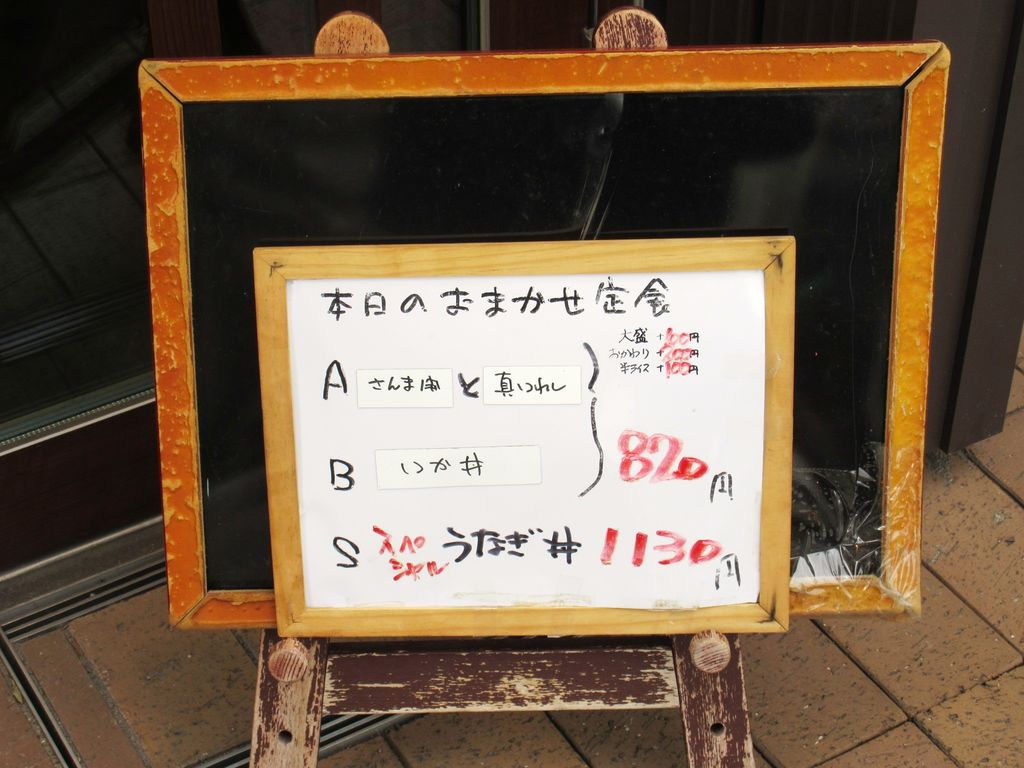 本日のおまかせ定食
大盛 +100円
おかわり +100円
半ライス +100円
A さんま と 真いわし
B いか丼
820円
S スペシャル うなぎ丼 1130円